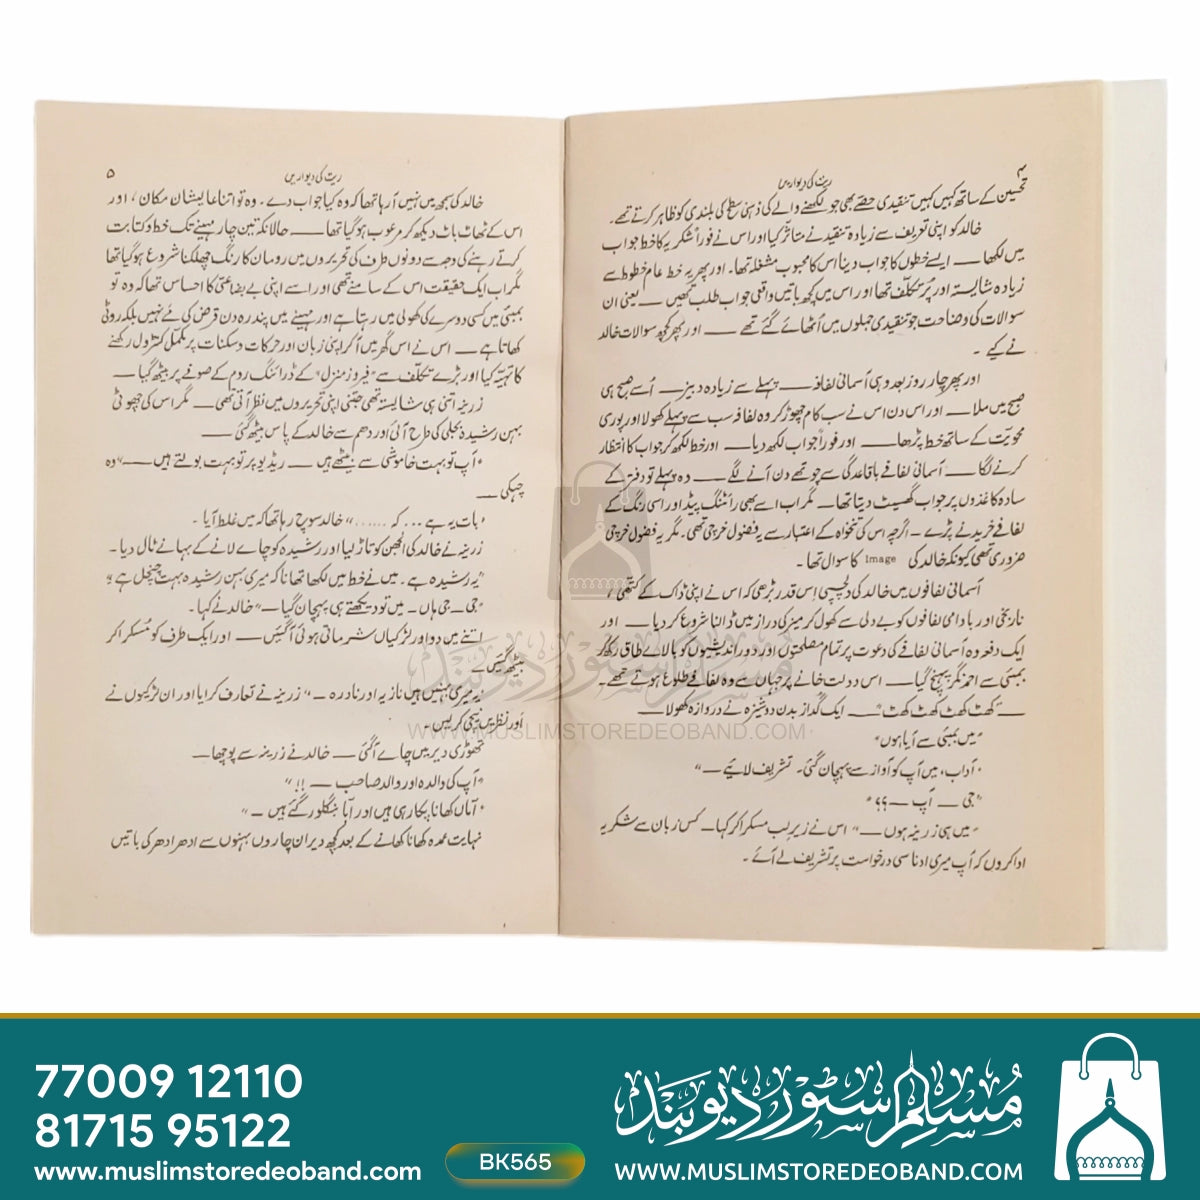 ۴
ریت کی دیواریں
تحسین کے ساتھ کہیں کہیں تنقیدی حصّے بھی جو لکھنے والے کی ذہنی سطح کی بلندی کو ظاہر کرتے تھے۔
خالد کو اپنی تعریف سے زیادہ تنقید نے متاثر کیا اور اس نے فوراً شکریہ کا خط جواب
میں لکھا ــ ایسے خطوں کا جواب دینا اس کا محبوب مشغلہ تھا۔ اور پھر یہ خط عام خطوط سے
زیادہ شائستہ اور پُر تکلّف تھا اور اس میں کچھ باتیں واقعی جواب طلب تھیں ــ یعنی ان
سوالات کی وضاحت جو تنقیدی جملوں میں اُٹھائے گئے تھے ــ اور پھر کچھ سوالات خالد
نے کیے ۔
اور پھر چار روز بعد وہی آسمانی لفافہ ــ پہلے سے زیادہ دبیز ــ اُسے صبح ہی
صبح میں ملا ــ اور اس دن اس نے سب کام چھوڑ کر وہ لفافہ سب سے پہلے کھولا اور پوری
محویّت کے ساتھ خط پڑھا ــ اور فوراً جواب لکھ دیا ــ اور خط لکھ کر جواب کا انتظار
کرنے لگا ــ آسمانی لفافے باقاعدگی سے چوتھے دن آنے لگے ــ وہ پہلے تو دفتر کے
سادہ کاغذوں پر جواب گھسیٹ دیتا تھا ــ مگر اب اسے بھی رائٹنگ پیڈ اور اسی رنگ کے
لفافے خریدنے پڑے ــ اگرچہ اس کی تنخواہ کے اعتبار سے یہ فضول خرچی تھی۔ مگر یہ فضول خرچی
ضروری تھی کیونکہ خالد کی Image کا سوال تھا ۔
آسمانی لفافوں میں خالد کی دلچسپی اِس قدر بڑھی کہ اس نے اپنی ڈاک کے کتھئی ،
نارنجی اور بادامی لفافوں کو بے دلی سے کھول کر میز کی دراز میں ڈالنا شروع کر دیا ــ اور
ایک دفعہ وہ آسمانی لفافے کی دعوت پر تمام مصلحتوں اور دور اندیشیوں کو بالائے طاق رکھ کر
بمبئی سے احمد نگر پہنچ گیا ــ اس دولت خانے پر جہاں سے وہ لفافے طلوع ہوتے تھے ۔
ــ "کھٹ کھٹ کھٹ کھٹ" ــ ایک گداز بدن دوشیزہ نے دروازہ کھولا ــ
"میں بمبئی سے آیا ہوں"
"آداب، میں آپ کو آواز سے پہچان گئی۔ تشریف لائیے ــ"
"جی ــ آپ ــ ؟؟"
"میں ہی زرینہ ہوں ــ" اس نے زیرِ لب مسکرا کر کہا ــ کس زبان سے شکریہ
ادا کروں کہ آپ میری ادنا سی درخواست پر تشریف لے آئے ۔
ریت کی دیواریں
۵
خالد کی سمجھ میں نہیں آ رہا تھا کہ وہ کیا جواب دے ۔ وہ تو اتنا عالیشان مکان ، اور
اس کے ٹھاٹ باٹ دیکھ کر مرعوب ہو گیا تھا ــ حالانکہ تین چار مہینے تک خط و کتابت
کرتے رہنے کی وجہ سے دونوں طرف کی تحریروں میں رومان کا رنگ چھلکنا شروع ہو گیا تھا
مگر اب ایک حقیقت اس کے سامنے تھی اور اسے اپنی بے بضاعتی کا احساس تھا کہ وہ تو
بمبئی میں کسی دوسرے کی کھولی میں رہتا ہے اور مہینے میں پندرہ دن قرض کی مَے نہیں بلکہ روٹی
کھاتا ہے ــ اس نے اس گھر میں آکر اپنی زبان اور حرکات و سکنات پر مکمل کنٹرول رکھنے
کا تہیّہ کیا اور بڑے تکلّف سے "فیروز منزل" کے ڈرائنگ روم کے صوفے پر بیٹھ گیا ــ
زرینہ اتنی ہی شائستہ تھی جتنی اپنی تحریروں میں نظر آتی تھی ــ مگر اس کی چھوٹی
بہن رشیدہ بجلی کی طرح آئی اور دھم سے خالد کے پاس بیٹھ گئی ــ
"آپ تو بہت خاموشی سے بیٹھے ہیں ــ ریڈیو پر تو بہت بولتے ہیں ــ" وہ
چہکی ــ
"بات یہ ہے ... کہ ......" خالد سوچ رہا تھا کہ میں غلط آیا ۔
زرینہ نے خالد کی الجھن کو تاڑ لیا اور رشیدہ کو چائے لانے کے بہانے ٹال دیا ۔
"یہ رشیدہ ہے ۔ میں نے خط میں لکھا تھا نا کہ میری بہن رشیدہ بہت چنچل ہے"
"جی ــ جی ہاں ــ میں تو دیکھتے ہی پہچان گیا ــ" خالد نے کہا ۔
اتنے میں دو اور لڑکیاں شرماتی ہوئی آگئیں ــ اور ایک طرف کو مُسکرا کر
بیٹھ گئیں ــ
"یہ میری بہنیں ہیں نازیہ اور نادرہ ــ" زرینہ نے تعارف کرایا اور ان لڑکیوں نے
اور نظریں نیچی کر لیں ۔
تھوڑی دیر میں چائے آگئی ــ خالد نے زرینہ سے پوچھا ــ
"آپ کی والدہ اور والد صاحب ــ !!"
"امّاں کھانا پکا رہی ہیں اور ابّا بنگلور گئے ہیں ــ"
نہایت عمدہ کھانا کھانے کے بعد کچھ دیر ان چاروں بہنوں سے ادھر ادھر کی باتیں
مسلم سٹور دیوبند
WWW.MUSLIMSTOREDEOBAND.COM
77009 12110
81715 95122
www.muslimstoredeoband.com
BK565
مسلم سٹور دیوبند
WWW.MUSLIMSTOREDEOBAND.COM